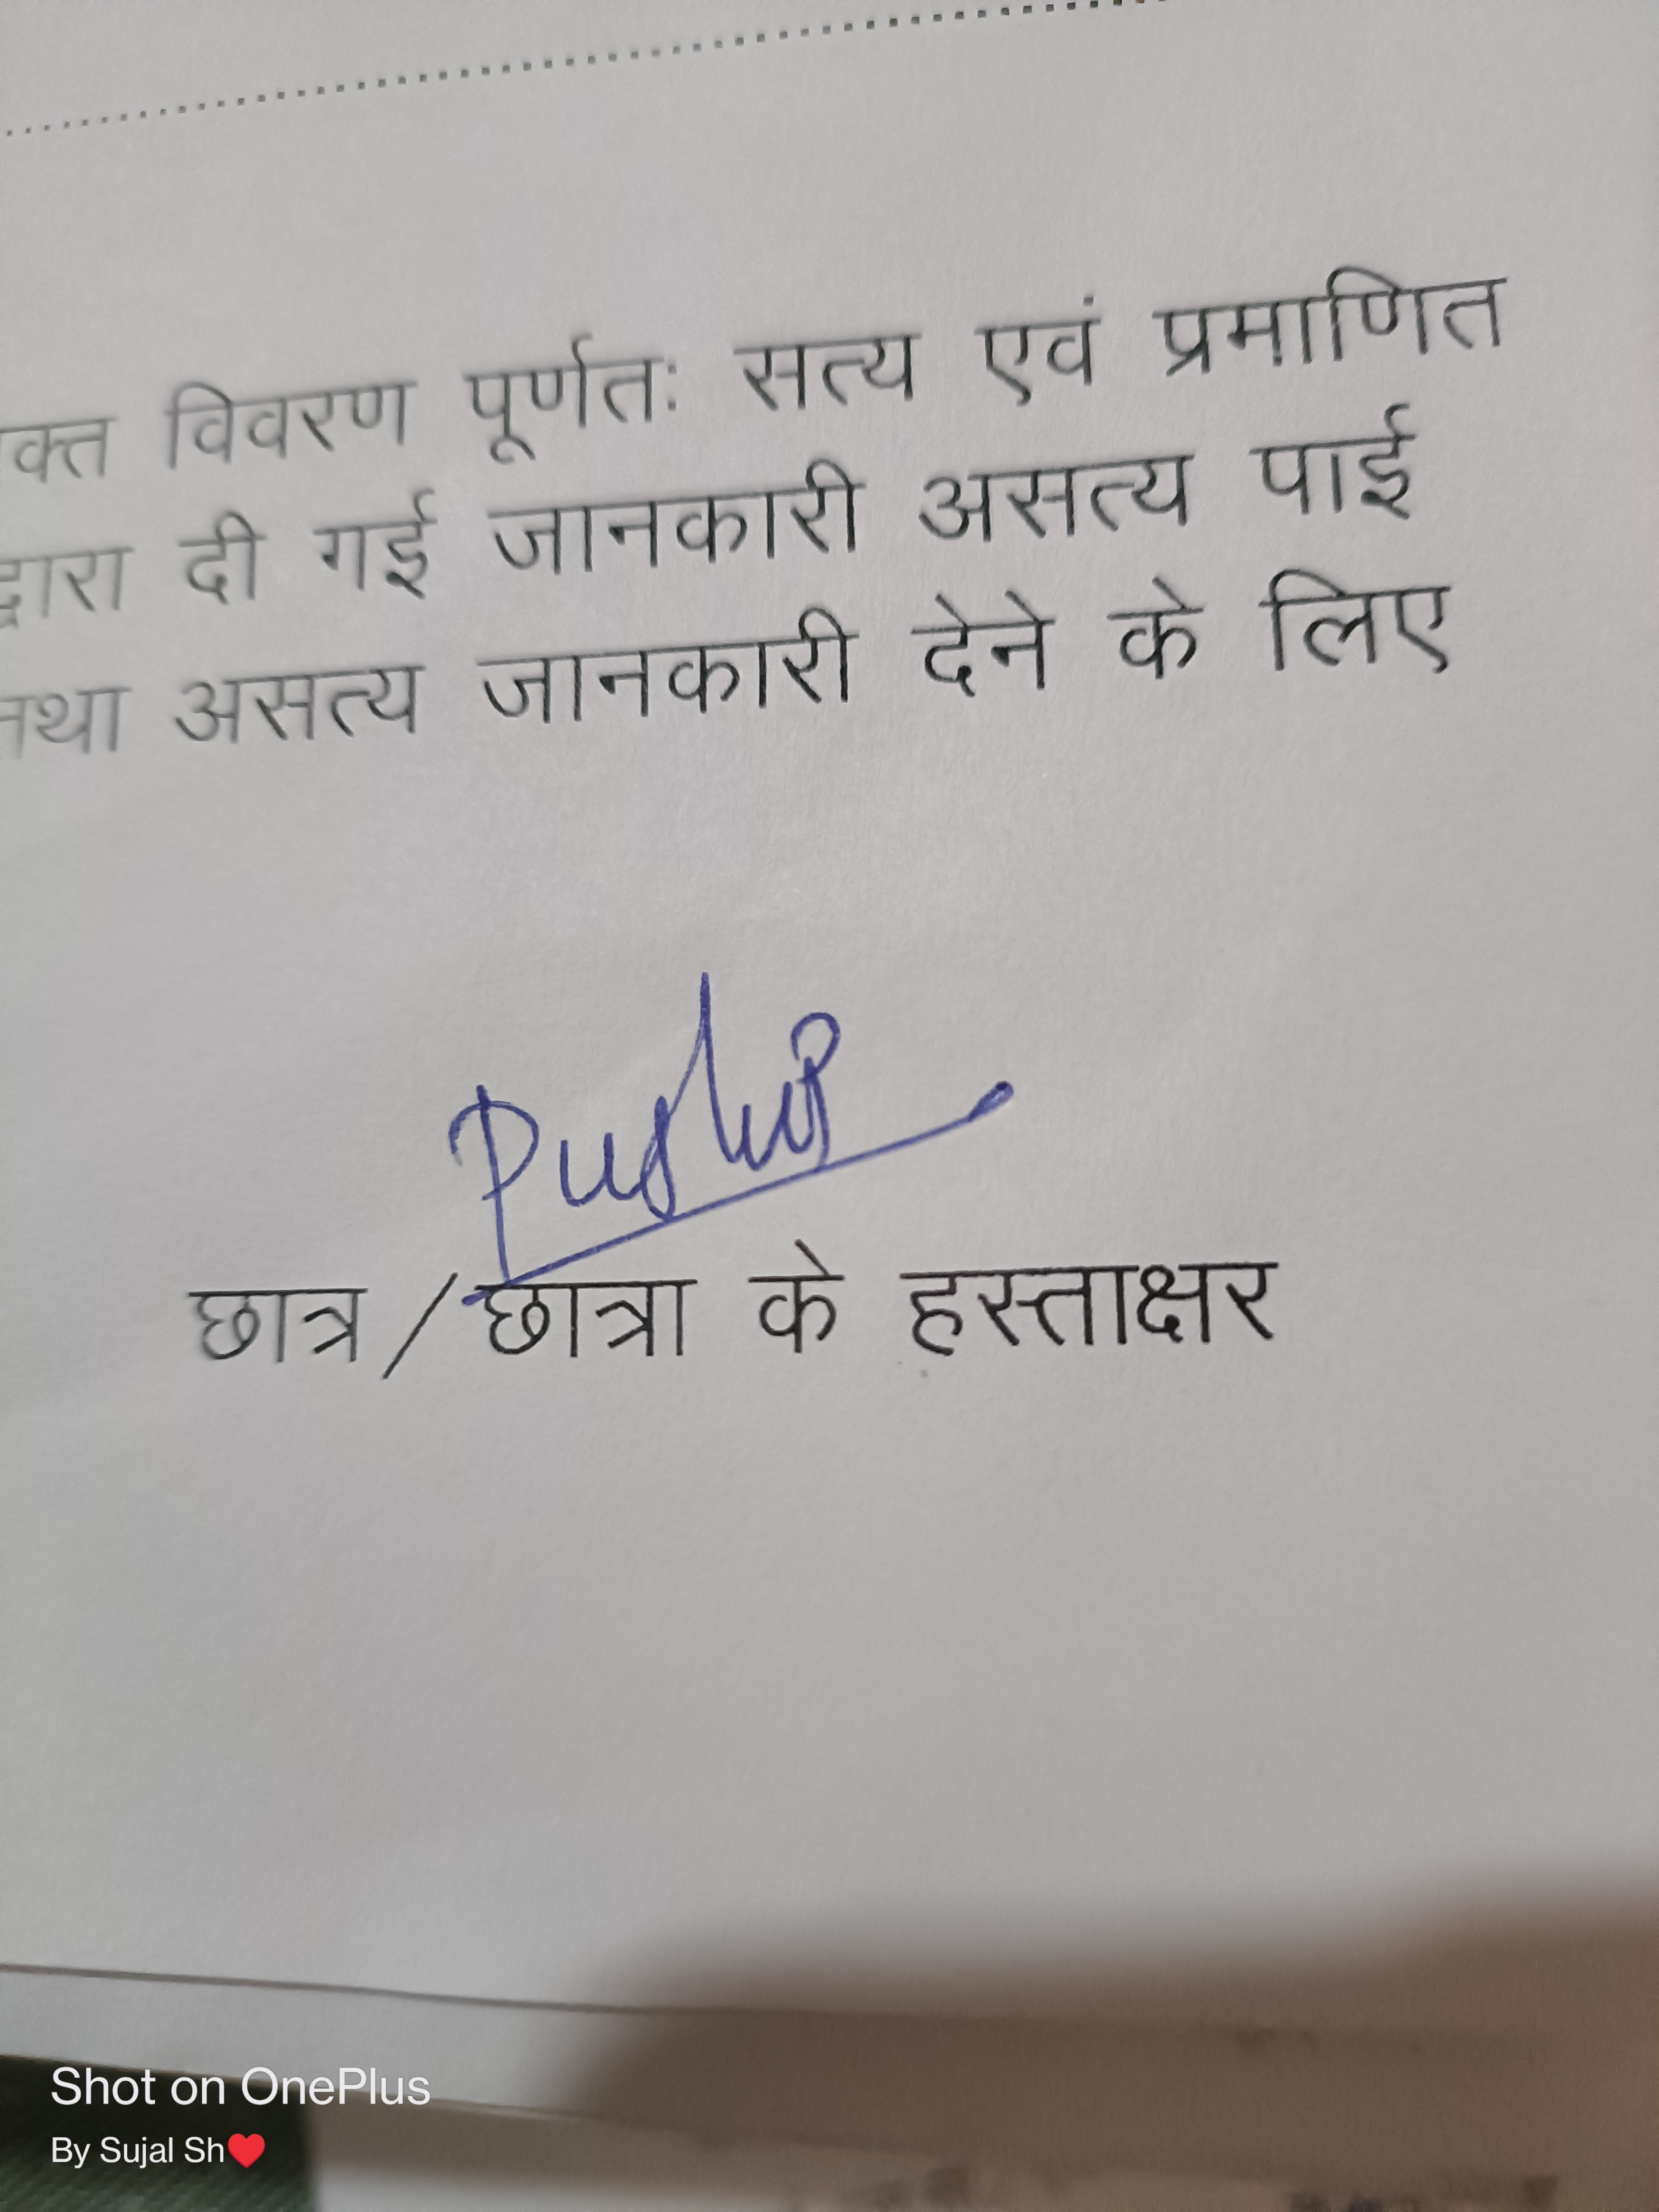 क्त विवरण पूर्णतः सत्य एवं प्रमाणित
द्वारा दी गई जानकारी असत्य पाई
तथा असत्य जानकारी देने के लिए
छात्र/छात्रा के हस्ताक्षर
Shot on OnePlus
By Sujal Sh❤️